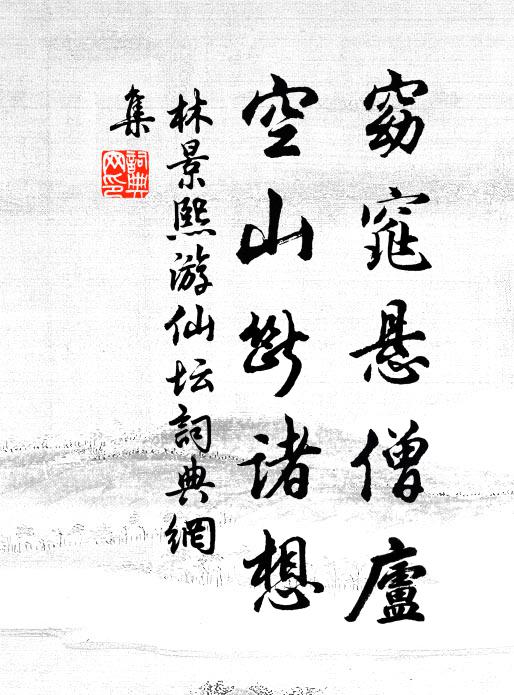 窈窕悬僧庐
空山断诸想
林景熙游仙坛詞典網
集
詞典
网印